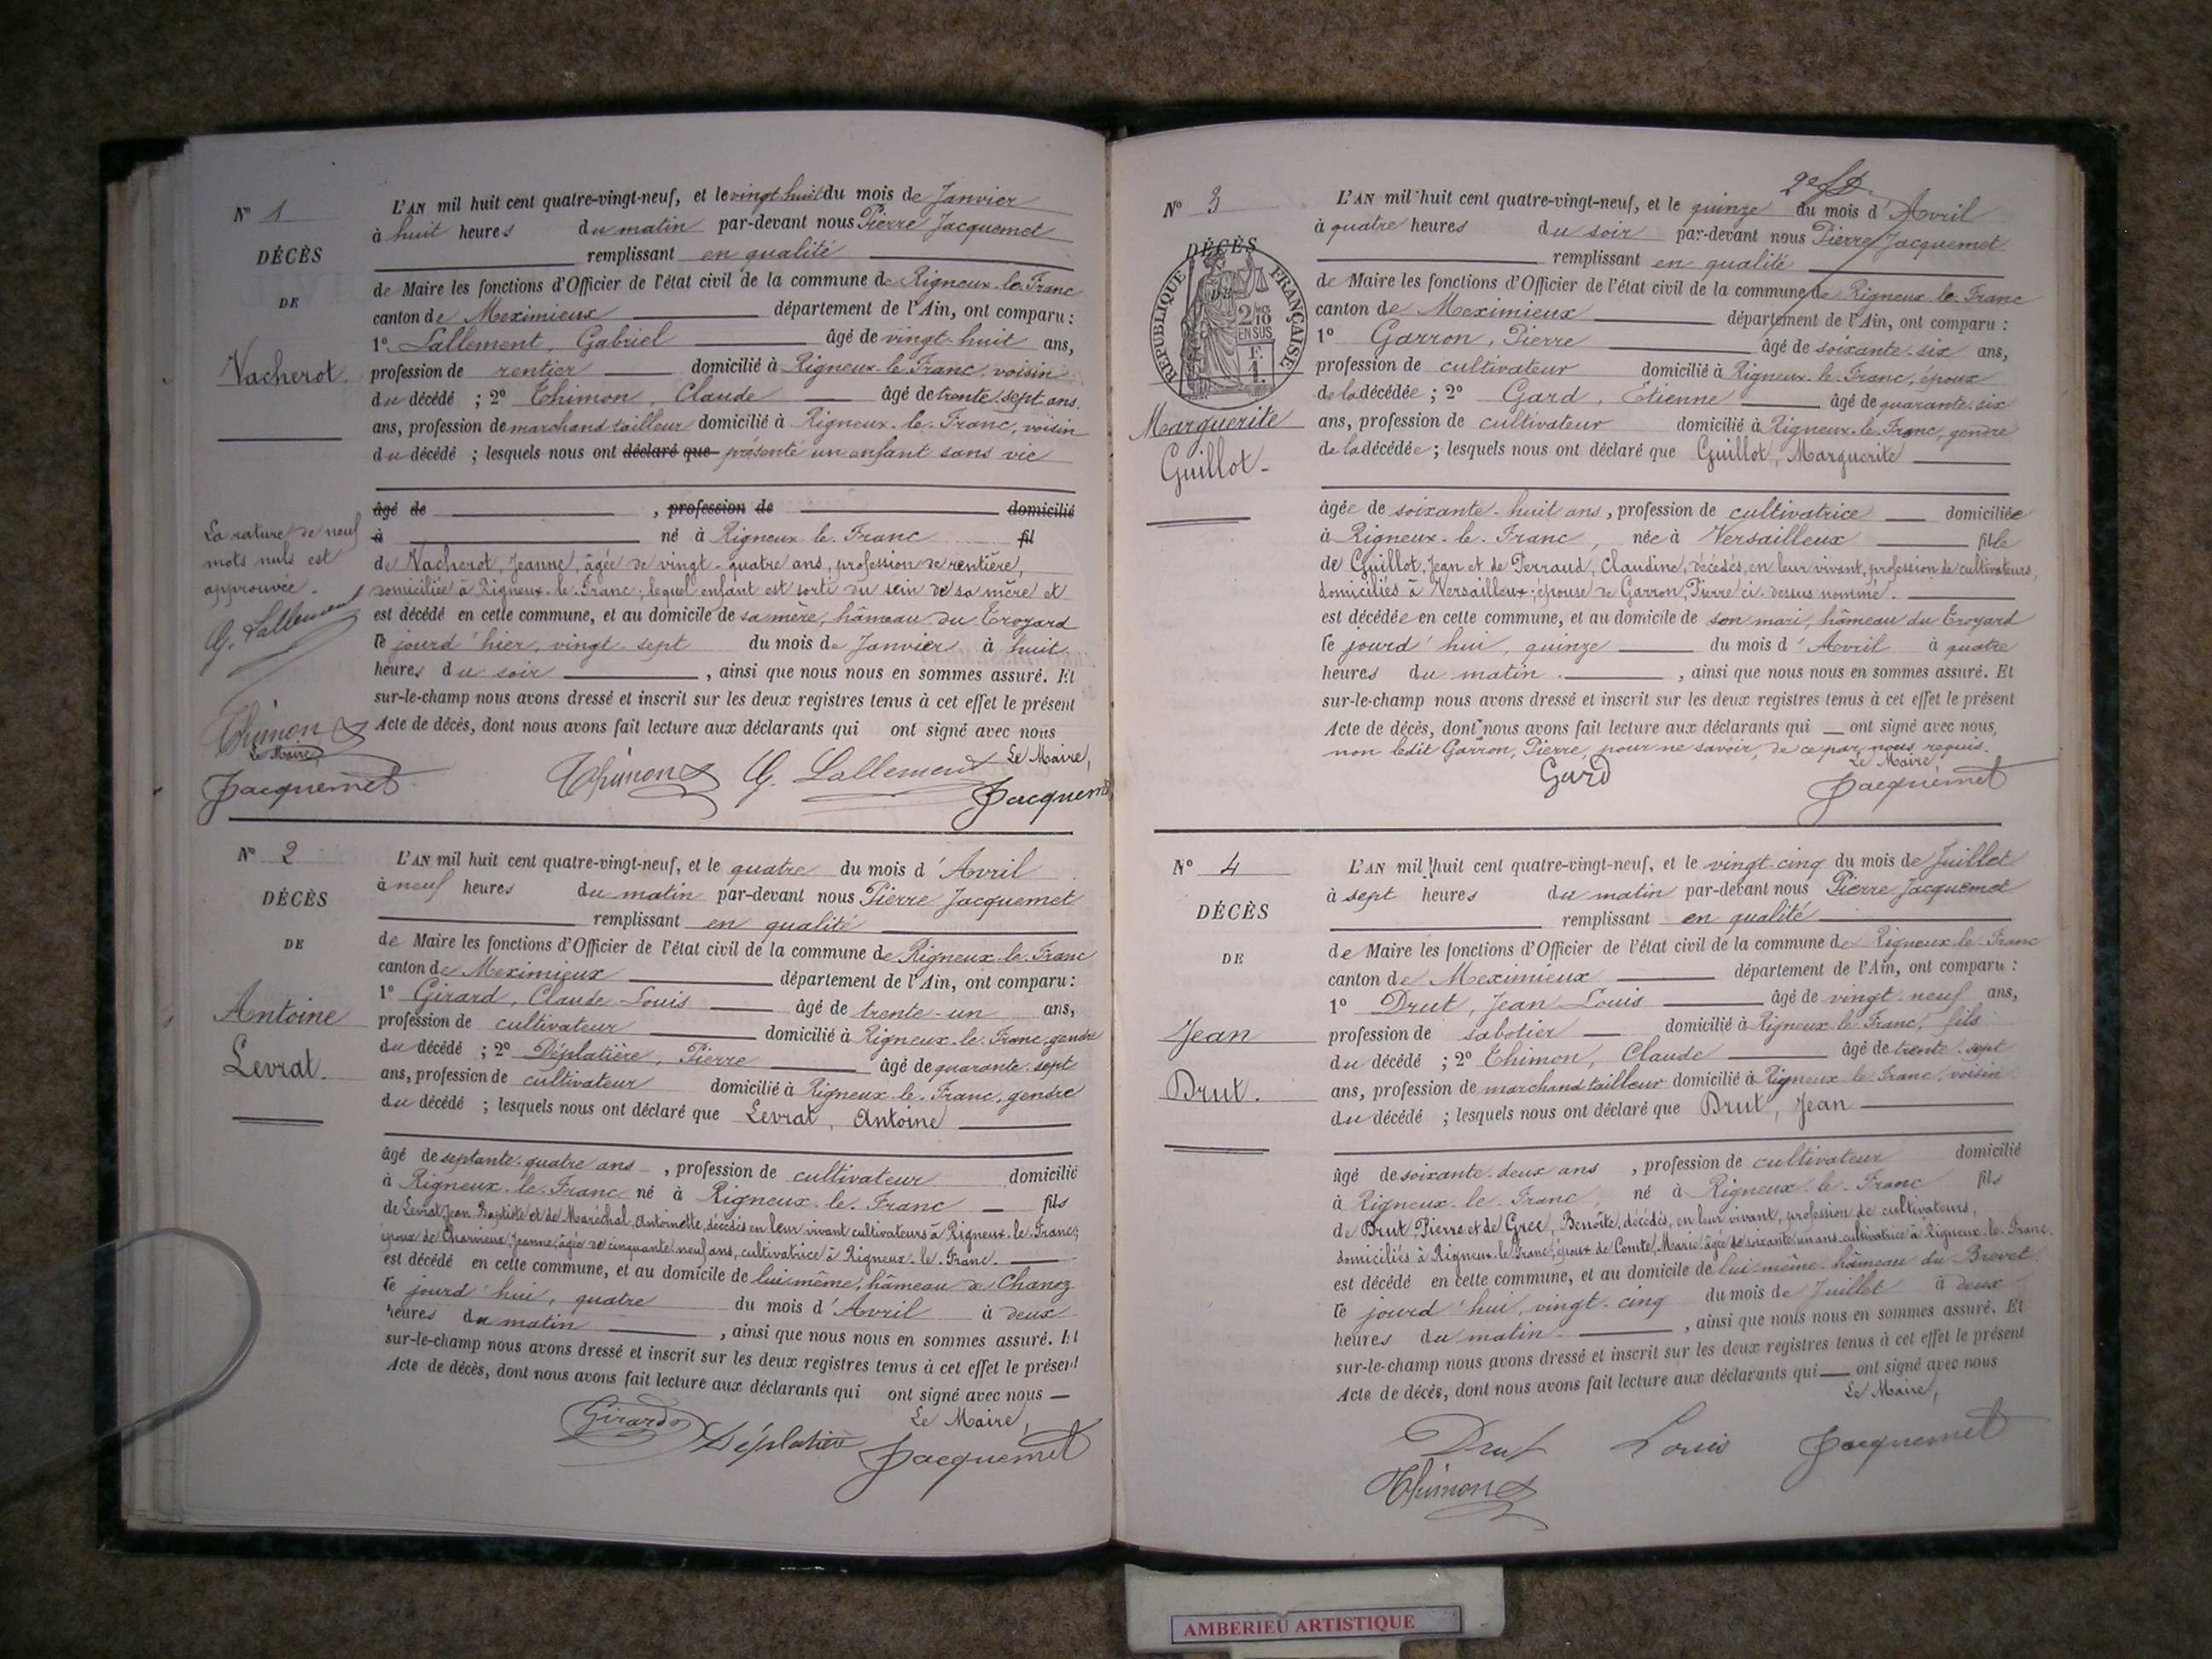 N° 1
DÉCÈS
DE
Vacherot.
La rature de neuf
mots nuls est
approuvée.
G. Lallement
Thimon
Le Maire,
Jacquemet
L'AN mil huit cent quatre-vingt-neuf, et le vingt huit du mois de Janvier
à huit heures du matin par-devant nous Pierre Jacquemet
remplissant en qualité
de Maire les fonctions d'Officier de l'état civil de la commune de Rigneux-le-Franc
canton de Meximieux département de l'Ain, ont comparu :
1° Lallement, Gabriel âgé de vingt-huit ans,
profession de rentier domicilié à Rigneux-le-Franc, voisin
du décédé ; 2° Thimon, Claude âgé de trente-sept ans.
ans, profession de marchand tailleur domicilié à Rigneux-le-Franc, voisin
du décédé ; lesquels nous ont déclaré que présenté un enfant sans vie
âgé de , profession de domicilié
à né à Rigneux-le-Franc fil
de Vacherot, Jeanne, âgée de vingt-quatre ans, profession de rentière,
domiciliée à Rigneux-le-Franc ; lequel enfant est sorti du sein de sa mère et
est décédé en cette commune, et au domicile de sa mère, hâmeau du Troyard
le jourd'hier, vingt-sept du mois de Janvier à huit
heures du soir , ainsi que nous nous en sommes assuré. Et
sur-le-champ nous avons dressé et inscrit sur les deux registres tenus à cet effet le présent
Acte de décès, dont nous avons fait lecture aux déclarants qui ont signé avec nous
Le Maire,
Thimon G. Lallement Jacquemet
N° 2
DÉCÈS
DE
Antoine
Levrat.
L'AN mil huit cent quatre-vingt-neuf, et le quatre du mois d'Avril
à neuf heures du matin par-devant nous Pierre Jacquemet
remplissant en qualité
de Maire les fonctions d'Officier de l'état civil de la commune de Rigneux-le-Franc
canton de Meximieux département de l'Ain, ont comparu :
1° Girard, Claude-Louis âgé de trente-un ans,
profession de cultivateur domicilié à Rigneux-le-Franc, gendre
du décédé ; 2° Déplatière, Pierre âgé de quarante-sept
ans, profession de cultivateur domicilié à Rigneux-le-Franc, gendre
du décédé ; lesquels nous ont déclaré que Levrat, Antoine
âgé de septante-quatre ans , profession de cultivateur domicilié
à Rigneux-le-Franc né à Rigneux-le-Franc fils
de Levrat, Jean Baptiste et de Maréchal, Antoinette, décédés en leur vivant cultivateurs à Rigneux-le-Franc ;
époux de Charvieux, Jeanne, âgée de cinquante-neuf ans, cultivatrice à Rigneux-le-Franc.
est décédé en cette commune, et au domicile de lui-même, hâmeau de Chanoz
le jourd'hui, quatre du mois d'Avril à deux
heures du matin , ainsi que nous nous en sommes assuré. Et
sur-le-champ nous avons dressé et inscrit sur les deux registres tenus à cet effet le présent
Acte de décès, dont nous avons fait lecture aux déclarants qui ont signé avec nous
Le Maire,
Girard Déplatière Jacquemet
2e
N° 3
DÉCÈS
DE
RÉPUBLIQUE FRANÇAISE
2 10
EN SUS
Marguerite
Guillot
L'AN mil huit cent quatre-vingt-neuf, et le quinze du mois d'Avril
à quatre heures du soir par-devant nous Pierre Jacquemet
remplissant en qualité
de Maire les fonctions d'Officier de l'état civil de la commune de Rigneux-le-Franc
canton de Meximieux département de l'Ain, ont comparu :
1° Garron, Pierre âgé de soixante-six ans,
profession de cultivateur domicilié à Rigneux-le-Franc, époux
de la décédée ; 2° Gard, Etienne âgé de quarante-six
ans, profession de cultivateur domicilié à Rigneux-le-Franc, gendre
de la décédée ; lesquels nous ont déclaré que Guillot, Marguerite
âgée de soixante-huit ans, profession de cultivatrice domiciliée
à Rigneux-le-Franc, née à Versailleux fille
de Guillot, Jean et de Perraud, Claudine, décédés, en leur vivant, profession de cultivateurs,
domiciliés à Versailleux ; épouse de Garron, Pierre ci-dessus nommé.
est décédée en cette commune, et au domicile de son mari, hâmeau du Troyard
le jourd'hui, quinze du mois d'Avril à quatre
heures du matin , ainsi que nous nous en sommes assuré. Et
sur-le-champ nous avons dressé et inscrit sur les deux registres tenus à cet effet le présent
Acte de décès, dont nous avons fait lecture aux déclarants qui ont signé avec nous,
non ledit Garron, Pierre, pour ne savoir, de ce par nous requis.
Le Maire,
Gard Jacquemet
N° 4
DÉCÈS
DE
Jean
Drut.
L'AN mil huit cent quatre-vingt-neuf, et le vingt-cinq du mois de Juillet
à sept heures du matin par-devant nous Pierre Jacquemet
remplissant en qualité
de Maire les fonctions d'Officier de l'état civil de la commune de Rigneux-le-Franc
canton de Meximieux département de l'Ain, ont comparu :
1° Drut, Jean-Louis âgé de vingt-neuf ans,
profession de sabotier domicilié à Rigneux-le-Franc, fils
du décédé ; 2° Thimon, Claude âgé de trente-sept
ans, profession de marchand tailleur domicilié à Rigneux-le-Franc, voisin
du décédé ; lesquels nous ont déclaré que Drut, Jean
âgé de soixante-deux ans , profession de cultivateur domicilié
à Rigneux-le-Franc, né à Rigneux-le-Franc fils
de Drut, Pierre et de Grec, Benoîte, décédés, en leur vivant, profession de cultivateurs,
domiciliés à Rigneux-le-Franc ; époux de Comte, Marie âgée de soixante-un ans, cultivatrice à Rigneux-le-Franc.
est décédé en cette commune, et au domicile de lui-même, hâmeau du Brevet
le jourd'hui, vingt-cinq du mois de Juillet à deux
heures du matin , ainsi que nous nous en sommes assuré. Et
sur-le-champ nous avons dressé et inscrit sur les deux registres tenus à cet effet le présent
Acte de décès, dont nous avons fait lecture aux déclarants qui ont signé avec nous
Le Maire,
Drut Louis Jacquemet
Thimon
AMBERIEU ARTISTIQUE